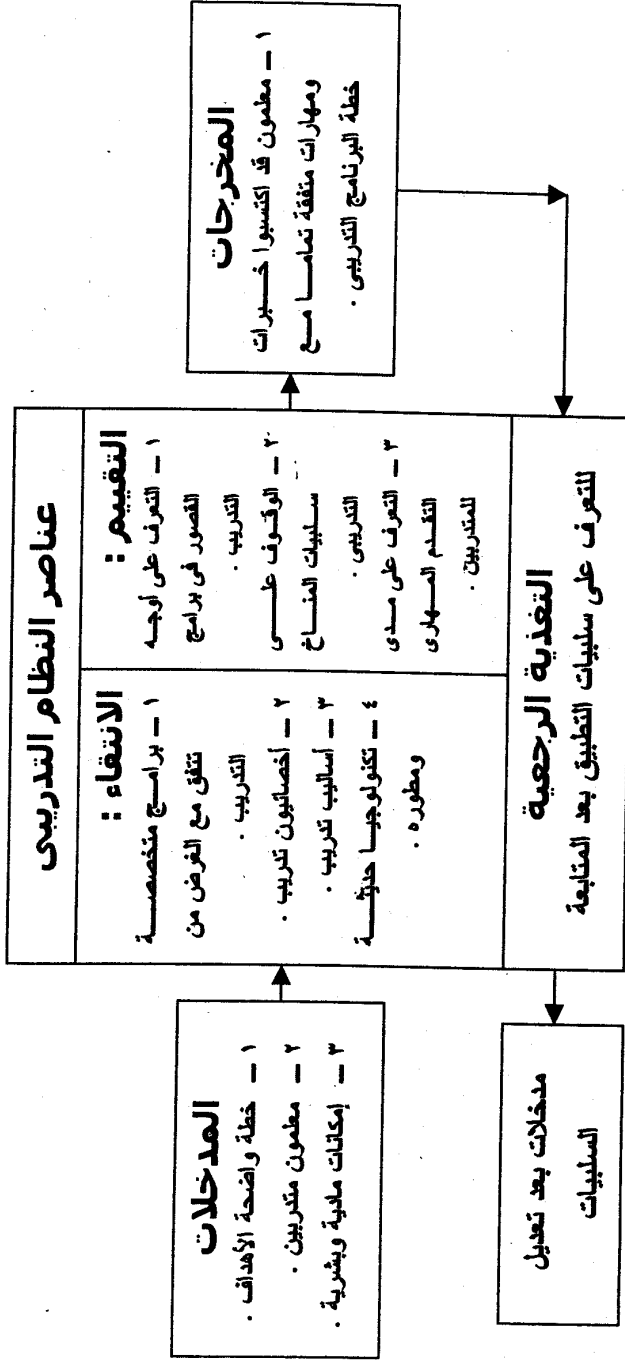 عناصر النظام التدريبى
المدخلات
١ – خطة واضحة الأهداف .
٢ – معلمون متدربين .
٣ – إمكانات مادية وبشرية .
الانتقاء :
١ – برامج متخصصة
تتفق مع الغرض من
التدريب .
٢ – أخصائيون تدريب .
٣ – أساليب تدريب .
٤ – تكنولوجيا حديثة
ومطوره .
التقييم :
١ – التعرف على أوجه
القصور فى برامج
التدريب .
٢ – الوقوف على
سلبيات المناخ
التدريبى .
٣ – التعرف على مدى
التقدم المهارى
للمتدربين .
المخرجات
١ – معلمون قد اكتسبوا خبرات
ومهارات متفقة تماما مع
خطة البرنامج التدريبى .
التغذية الرجعية
للتعرف على سلبيات التطبيق بعد المتابعة
مدخلات بعد تعديل
السلبيات